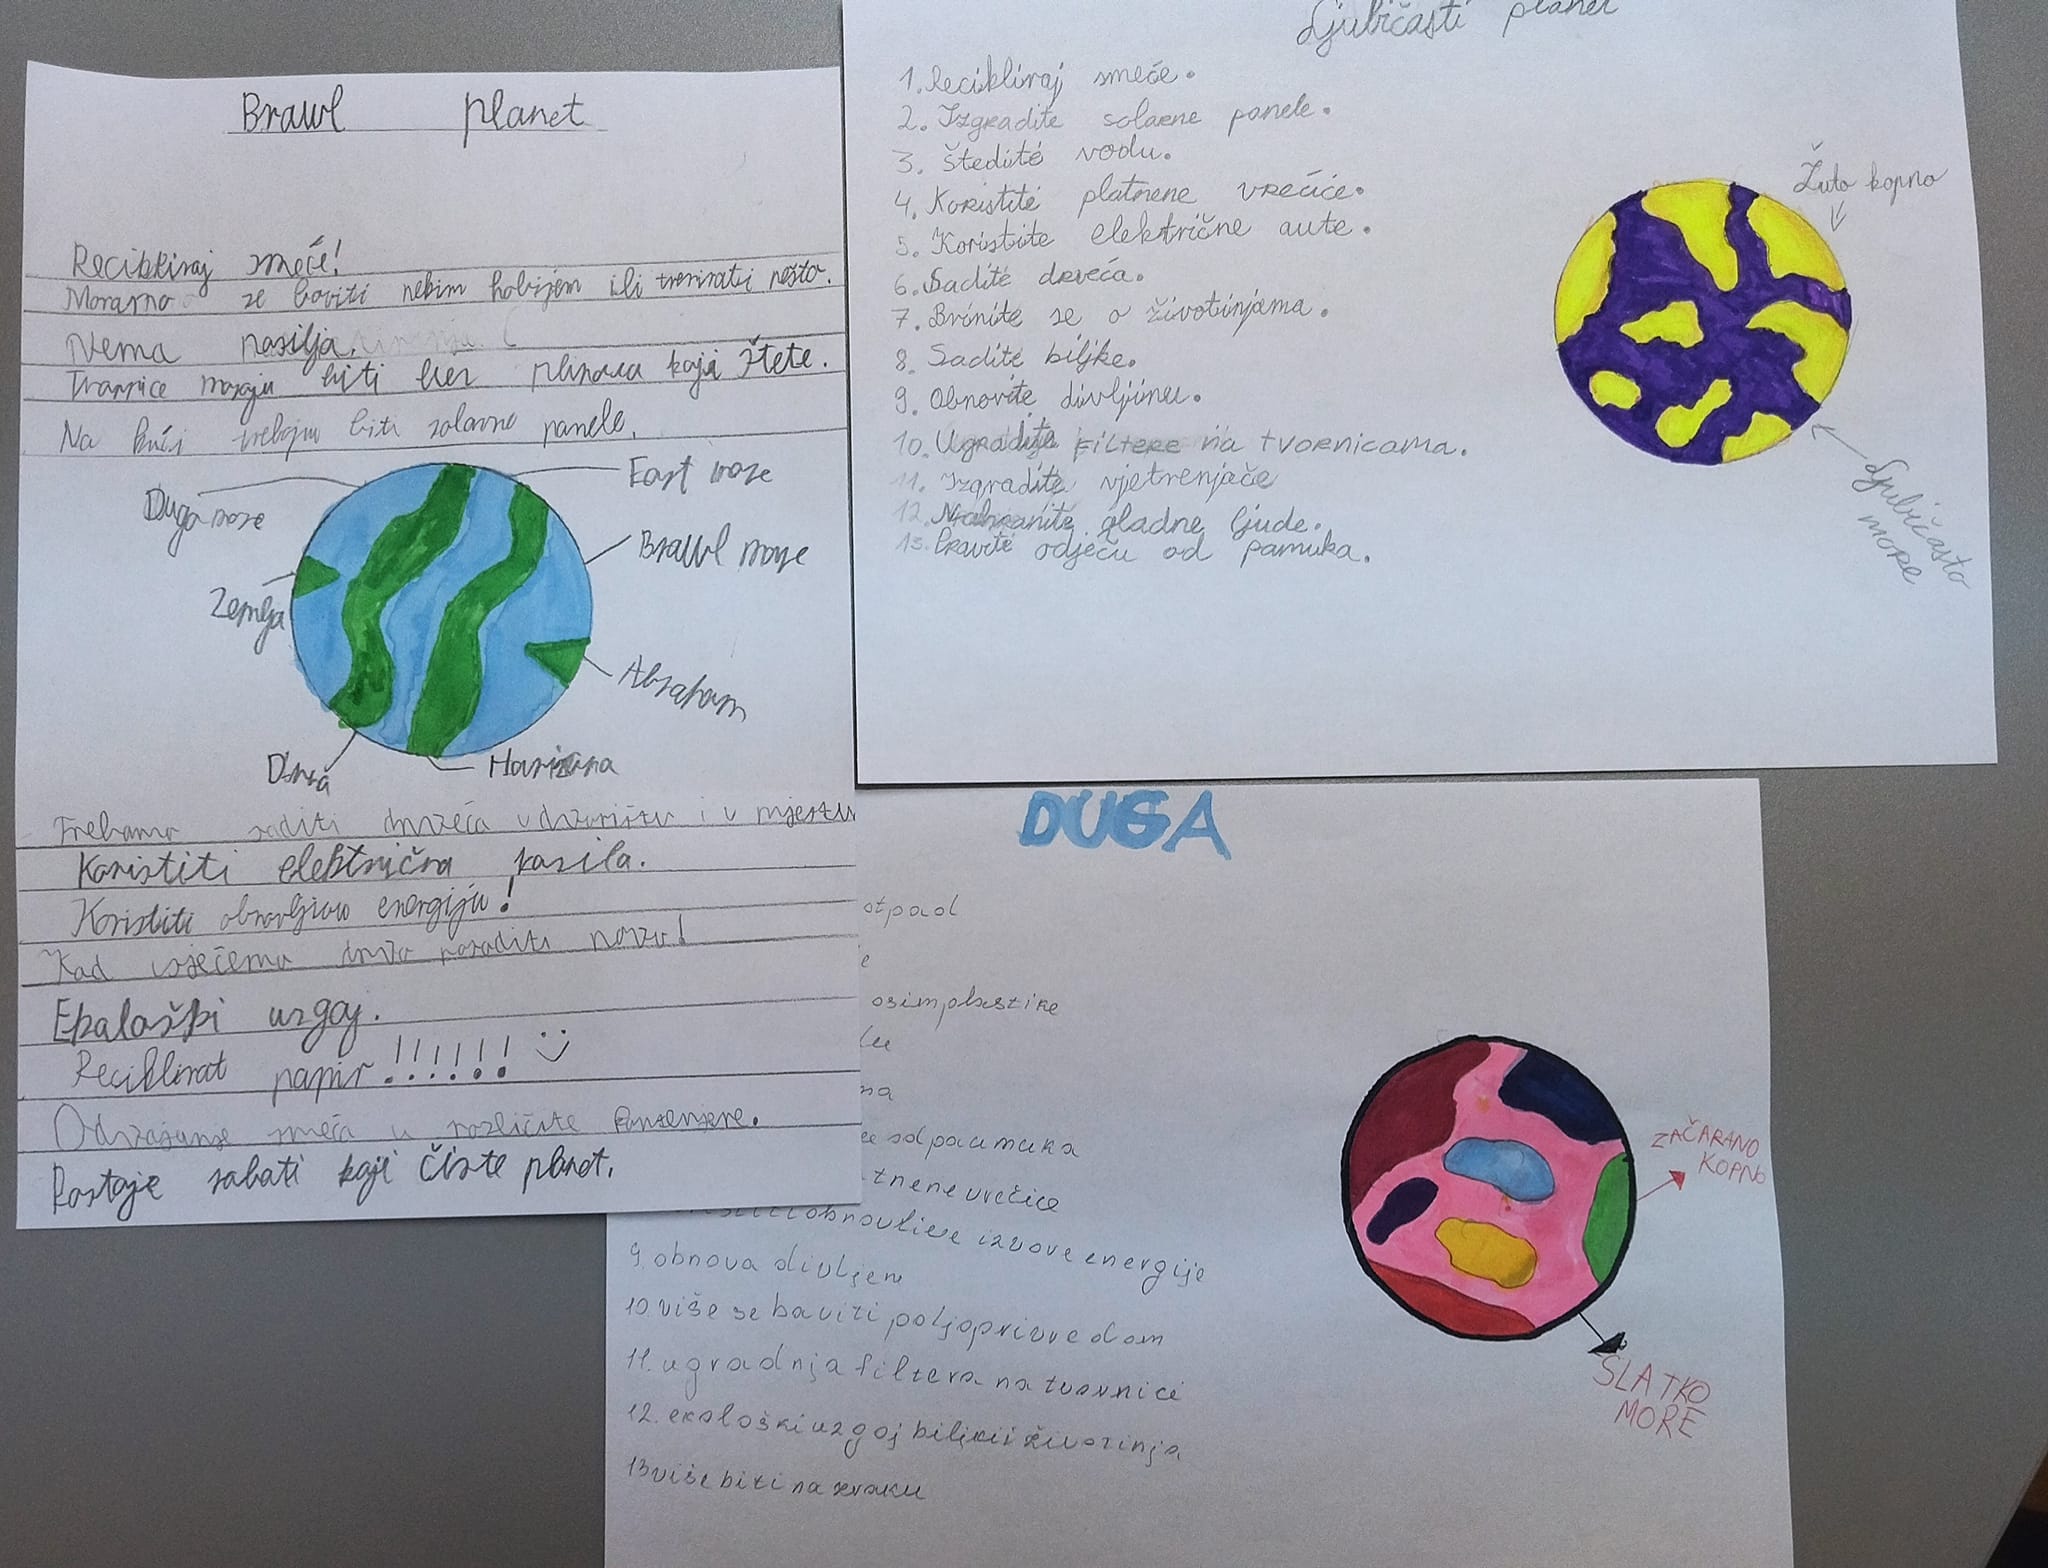 Brawl planet
Recikliraj smeće!
Moramo se baviti nekim hobijem ili trenirati nešto.
Nema nasilja.
Tvornice moraju biti bez plinova koji štete.
Na kući trebaju biti solarne panele.
East more
Duga more
Brawl more
Zemlja
Abraham
Harizona
Trebamo saditi drveća u dvorištu i u mjestu
Koristiti električna vozila.
Koristiti obnovljivu energiju!
Kad siječemo drvo posaditi novu!
Ekološki uzgoj.
Reciklirat papir!!!!!! :)
Odvajanje smeća u različite kontenjere.
Postoje roboti koji čiste planet.
Ljubičasti planet
1. Recikliraj smeće.
2. Izgradite solarne panele.
3. Štedite vodu.
4. Koristite platnene vrećice.
5. Koristite električne aute.
6. Sadite drveća.
7. Brinite se o životinjama.
8. Sadite biljke.
9. Obnovite divljinu.
10. Ugradite filtere na tvornicama.
11. Izgradite vjetrenjače
12. Nahranite gladne ljude.
13. Pravite odjeću od pamuka.
Žuto kopno
Ljubičasto more
DUGA
otpad
e
osim plastike
na
od paumuka
tnene vrečice
obnovlive izvore energije
9. obnova divljen
10. više se baviti poljoprivredom
11. ugradnja filtera na tvornice
12. ekološki uzgoj biljki i životinja
13 više biti na zraku
ZAČARANO KOPNO
SLATKO MORE